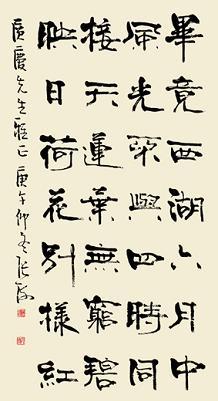 畢竟西湖六月中
風光不與四時同
接天蓮葉無窮碧
映日荷花別樣紅
廣慶先生雅正 庚午仲冬 張海